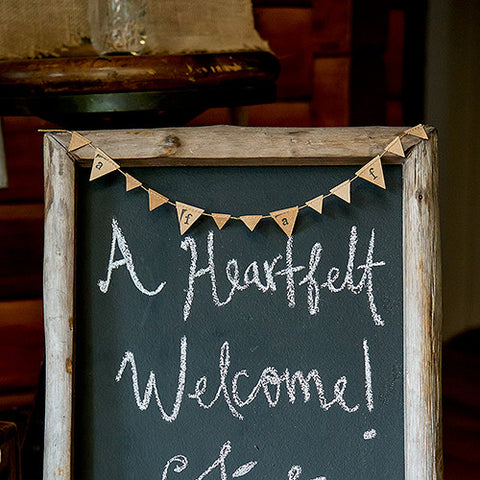 a f a f
A Heartfelt
Welcome!